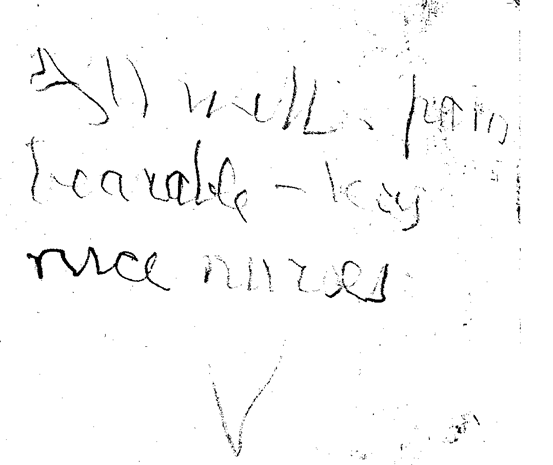 All well. pain
bearable - very
nice nurses
V